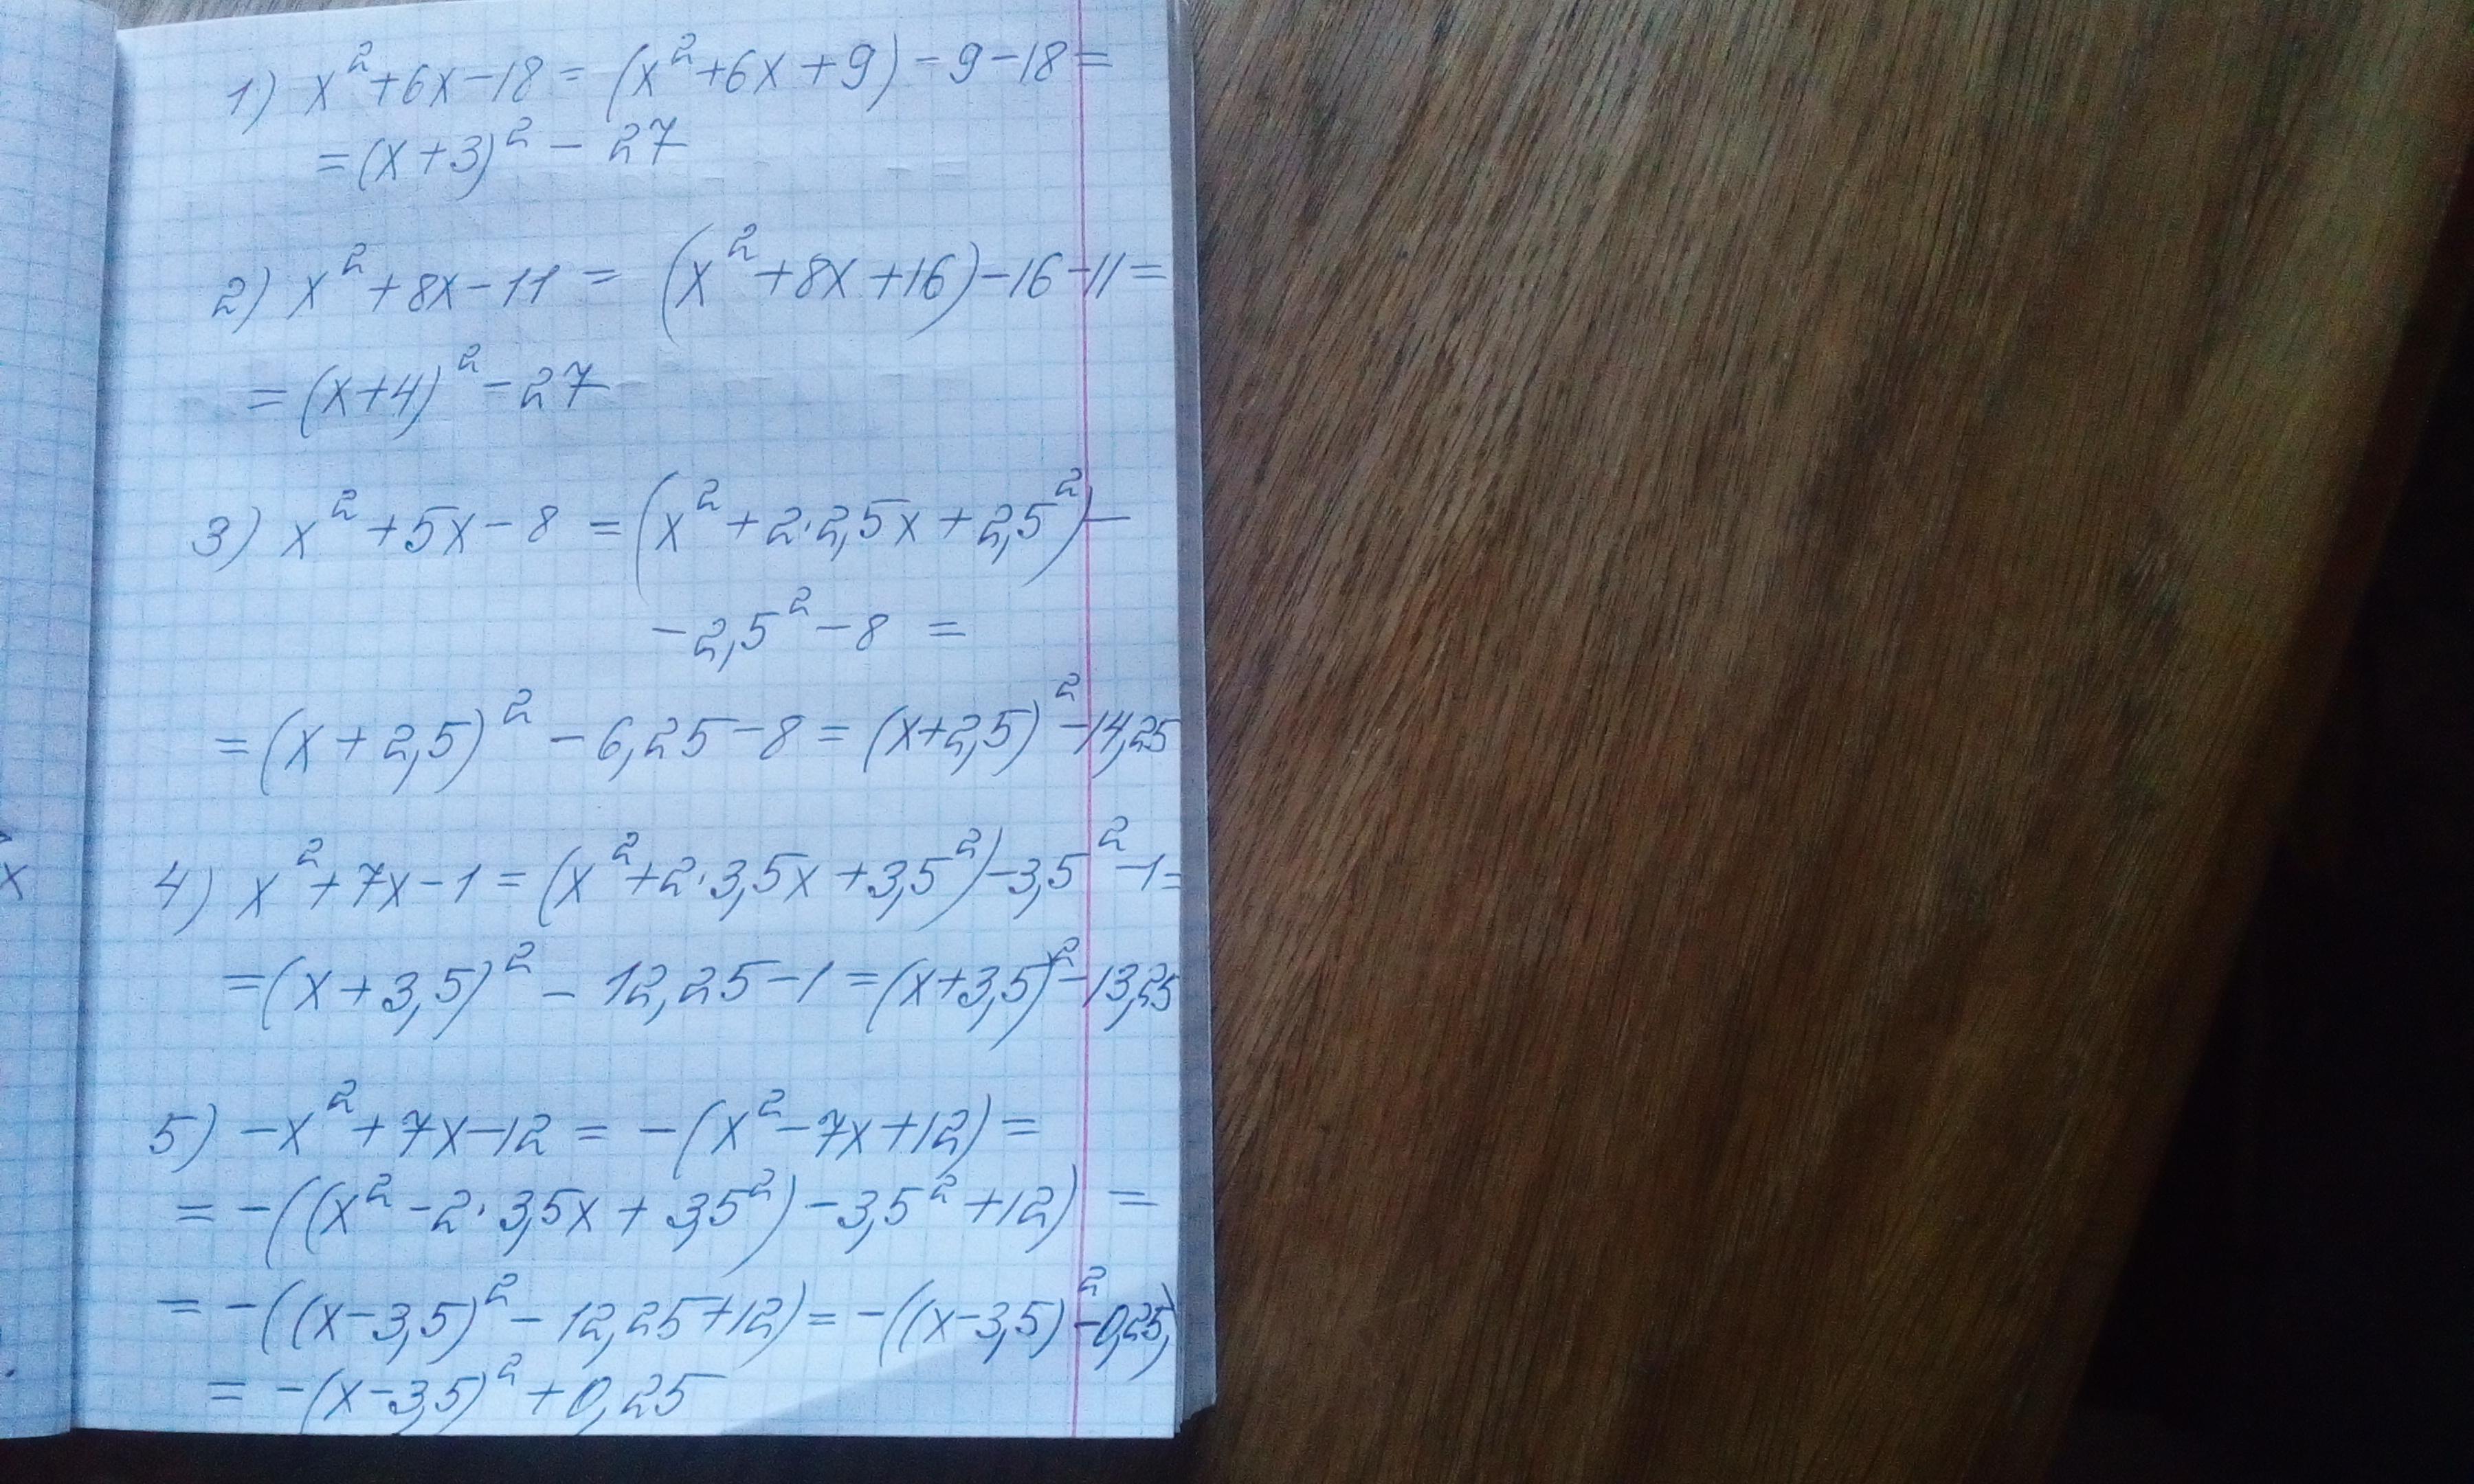 1) x²+6x-18 = (x²+6x+9)-9-18=
=(x+3)² - 27
2) x²+8x-11 = (x²+8x+16)-16-11=
=(x+4)²-27
3) x²+5x-8 =(x²+2·2,5x+2,5²)-
-2,5²-8 =
=(x+2,5)² - 6,25-8 = (x+2,5)²-14,25
4) x²+7x-1=(x²+2·3,5x+3,5²)-3,5²-1=
=(x+3,5)² - 12,25-1=(x+3,5)²-13,25
x
5) -x²+7x-12 = -(x²-7x+12)=
= -((x²-2·3,5x+3,5²)-3,5²+12) =
= -((x-3,5)²-12,25+12)= -((x-3,5)²-0,25)
= -(x-3,5)²+0,25